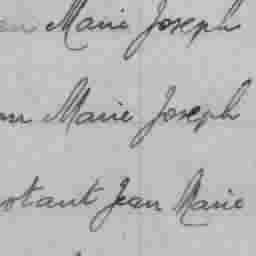 en Marie Joseph
an Marie Joseph
stant Jean Marie